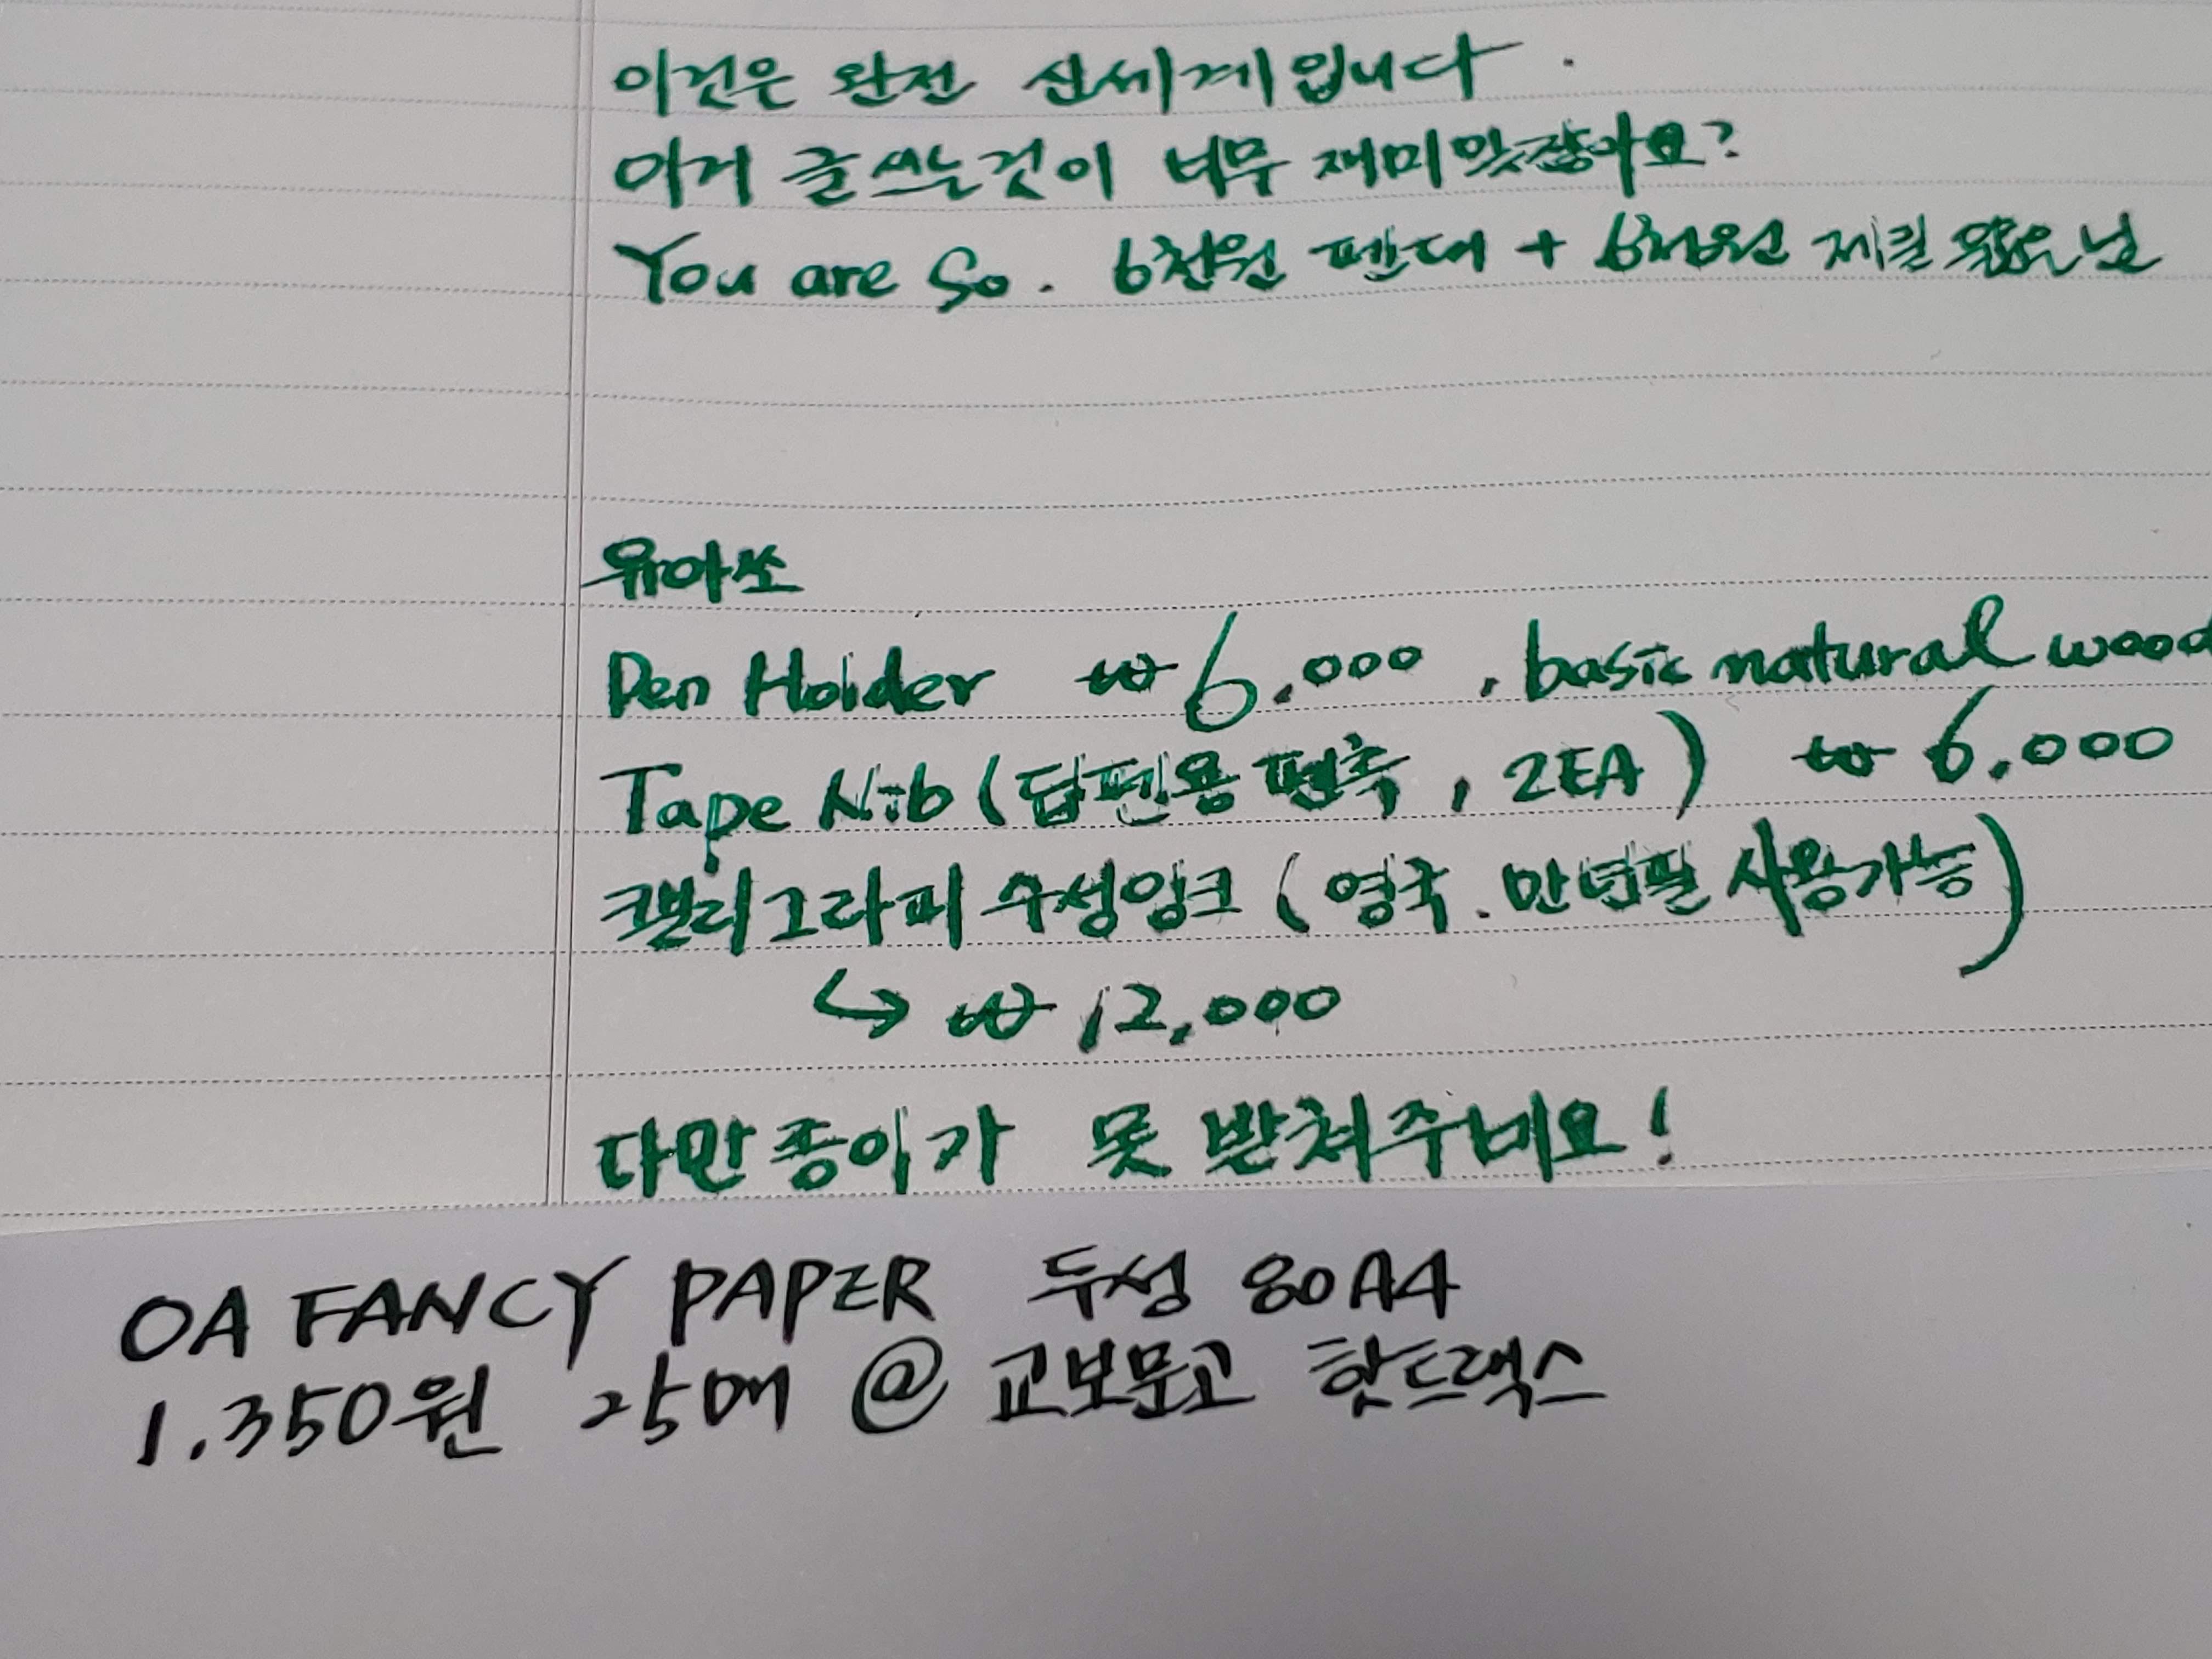 이건은 완전 신세계입니다.
이거 글쓰는것이 너무 재미있잖아요?
You are So. 6천원 펜대 + 6천원 제킬 닢
유아쏘
Pen Holder ₩6,000, basic natural wood
Tape Nib (딥펜용 펜촉, 2EA) ₩6,000
캘리그라피 수성잉크 (영국. 만년필 사용가능)
↳ ₩12,000
다만 종이가 못 받쳐주네요!
OA FANCY PAPER 두성 80A4
1.350원 25매 @ 교보문고 핫트랙스